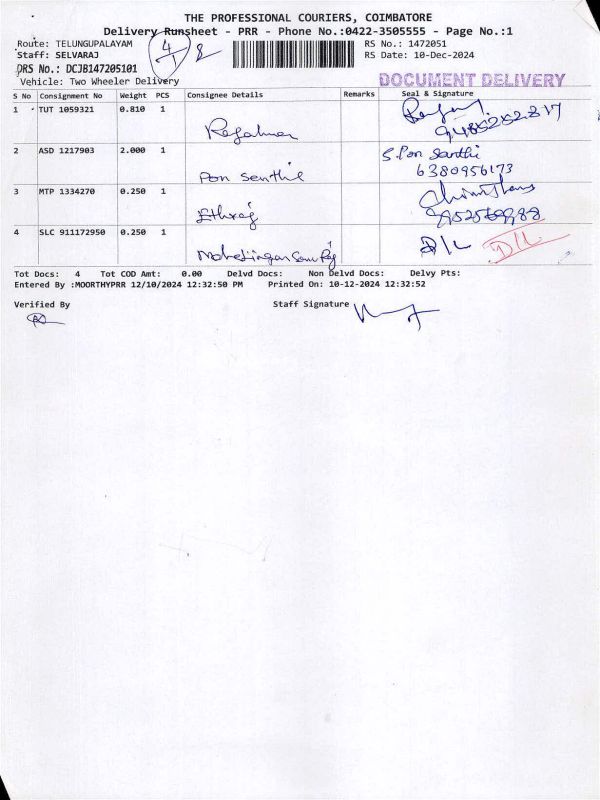 THE PROFESSIONAL COURIERS, COIMBATORE
Delivery Runsheet - PRR - Phone No.:0422-3505555 - Page No.:1
Route: TELUNGUPALAYAM
Staff: SELVARAJ
DRS No.: DCJB147205101
Vehicle: Two Wheeler Delivery
4
1
2
RS No.: 1472051
RS Date: 10-Dec-2024
DOCUMENT DELIVERY
S No Consignment No Weight PCS Consignee Details Remarks Seal & Signature
1 TUT 1059321 0.810 1
2 ASD 1217903 2.000 1 Pon Senthil S.Pon Senthil
6380956173
3 MTP 1334270 0.250 1 Ethraj
4 SLC 911172950 0.250 1 D/L D/L
Tot Docs: 4 Tot COD Amt: 0.00 Delvd Docs: Non Delvd Docs: Delvy Pts:
Entered By :MOORTHYPRR 12/10/2024 12:32:50 PM Printed On: 10-12-2024 12:32:52
Verified By Staff Signature